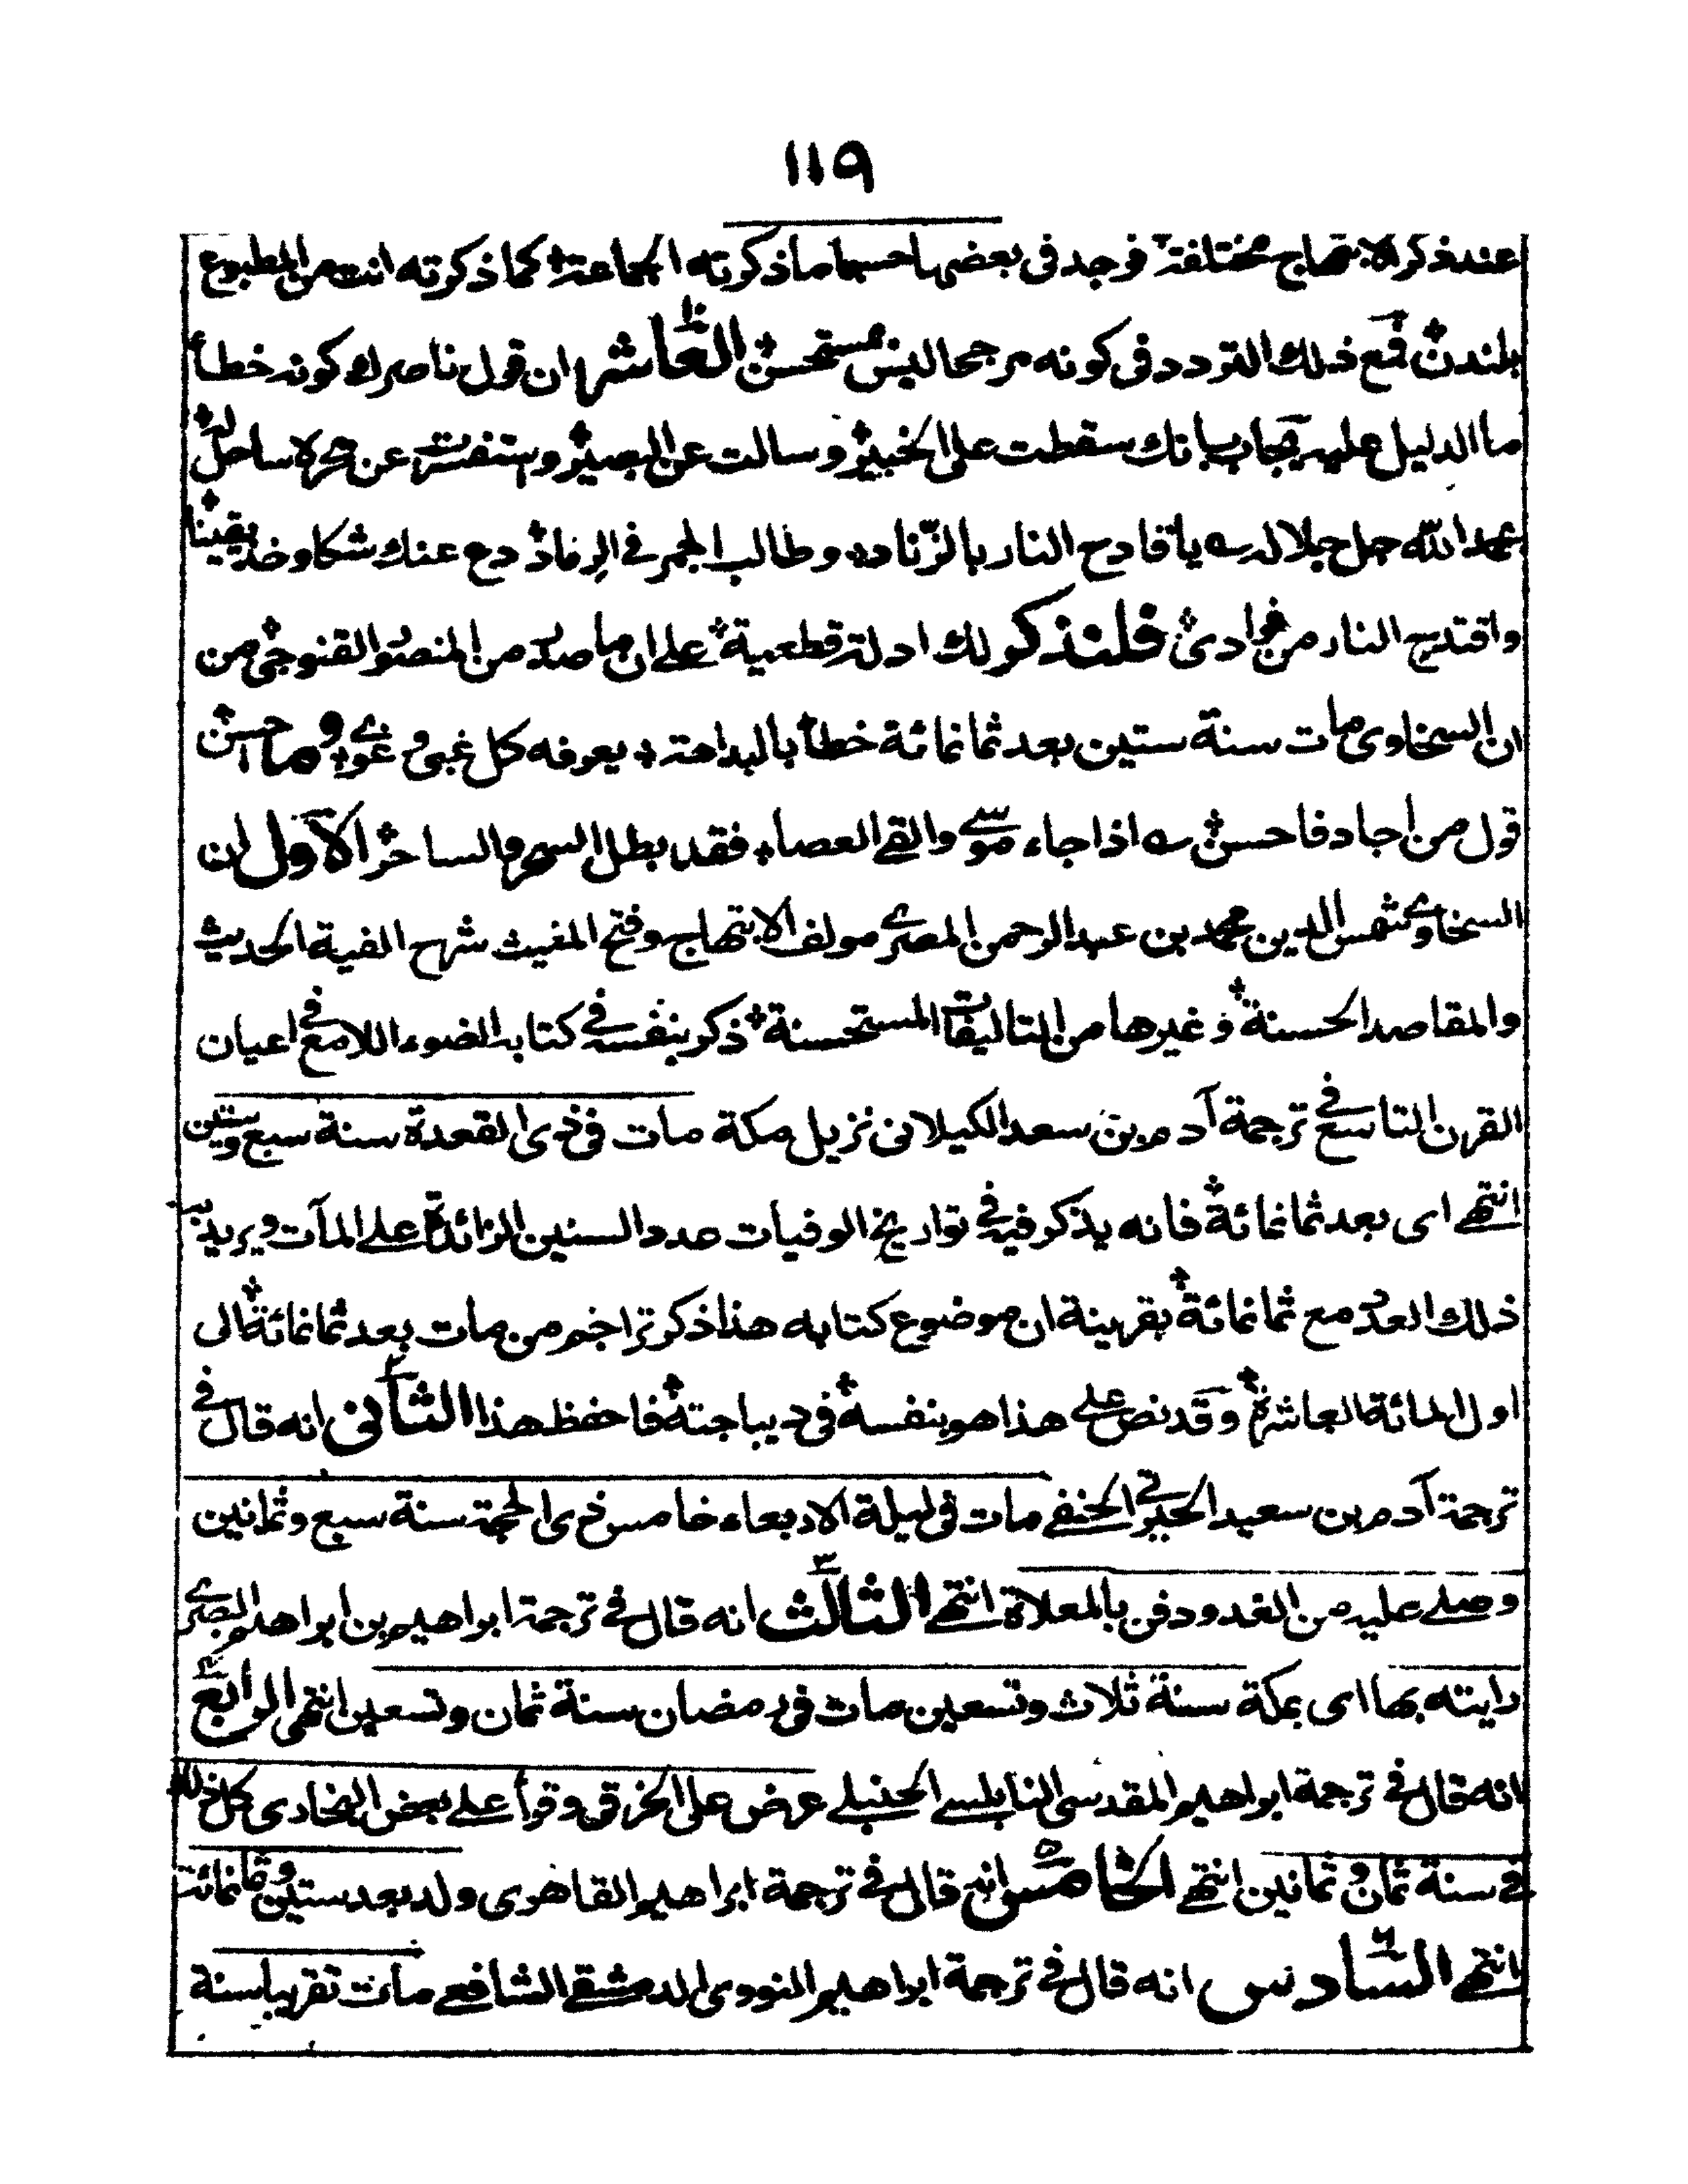 ١١٩
عند ذكر الابتهاج مختلفة فوجد فى بعضها حسبما ما ذكرته الجماعة كما ذكرته انت من المطبوع
بلندن فمع ذلك التردد فى كونه مرجحا ليس بمستحسن العاشر ان قول ناصرك كونه خطأ
ما الدليل عليه يجاب بانك سقطت على الخبير وسالت عن البصير واستفسرت عن بحر لا ساحل له
بحمد الله جل جلاله يا قادح النار بالزناد وطالب الجمر فى الرماد دع عنك شكا وخذ يقينا
واقتدح النار من فوادى فلنذكر لك ادلة قطعية على ان ما صدر من المنصور القنوجى من
ان السخاوى مات سنة ستين بعد ثمانمائة خطأ بالبداهة يعرفه كل غبى وغوى وما احسن
قول من اجاد فاحسن اذا جاء موسى والقى العصا فقد بطل السحر والساحر الاول ان
السخاوى شمس الدين محمد بن عبد الرحمن المصرى مولف الابتهاج وفتح المغيث شرح الفية الحديث
والمقاصد الحسنة وغيرها من التاليفات المستحسنة ذكر بنفسه فى كتابه الضوء اللامع فى اعيان
القرن التاسع فى ترجمة آدم بن سعد الكيلانى نزيل مكة مات فى ذى القعدة سنة سبع وستين
انتهى اى بعد ثمانمائة فانه يذكر فيه فى تواريخ الوفيات عدد السنين الزائدة على المآت ويريد به
ذلك العدد مع ثمانمائة بقرينة ان موضوع كتابه هذا ذكر تراجم من مات بعد ثمانمائة الى
اول المائة العاشرة وقد نص على هذا هو بنفسه فى ديباجته فاحفظ هذا الثانى انه قال فى
ترجمة آدم بن سعيد الحنفى مات فى ليلة الاربعاء خامس ذى الحجة سنة سبع وثمانين
وصلى عليه من الغد ودفن بالمعلاة انتهى الثالث انه قال فى ترجمة ابراهيم بن ابراهيم البصرى
رايته بها اى بمكة سنة ثلاث وتسعين مات فى رمضان سنة ثمان وتسعين انتهى الرابع
انه قال فى ترجمة ابراهيم المقدسى النابلسى الحنبلى عرض على الخرقى وقرأ على بعض البخارى كل ذلك
فى سنة ثمان وثمانين انتهى الخامس انه قال فى ترجمة ابراهيم القاهرى ولد بعد ستين وثمانمائة
انتهى السادس انه قال فى ترجمة ابراهيم النووى الدمشقى الشافعى مات تقريبا سنة